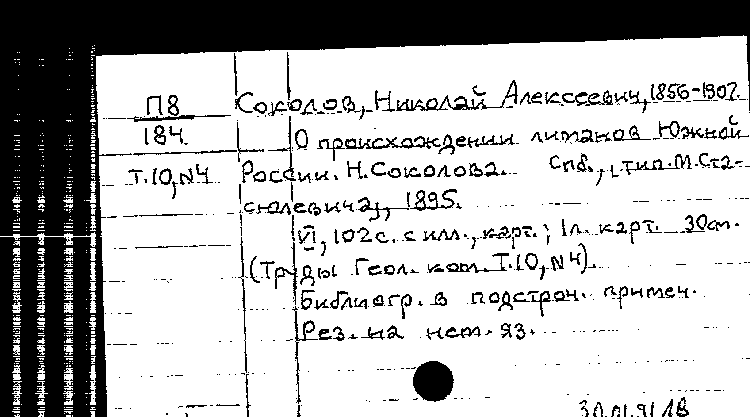 П8 Соколов, Николай Алексеевич, 1856-1907.
184. О происхождении лиманов Южной
Т.10, N4 России. Н. Соколова. Спб., тип. М. Ста-
сюлевича, 1895.
VI, 102 с. с илл., карт.; 1 л. карт. 30 см.
(Труды Геол. ком. Т.10, N4).
Библиогр. в подстроч. примеч.
Рез. на нем. яз.
30.01.91